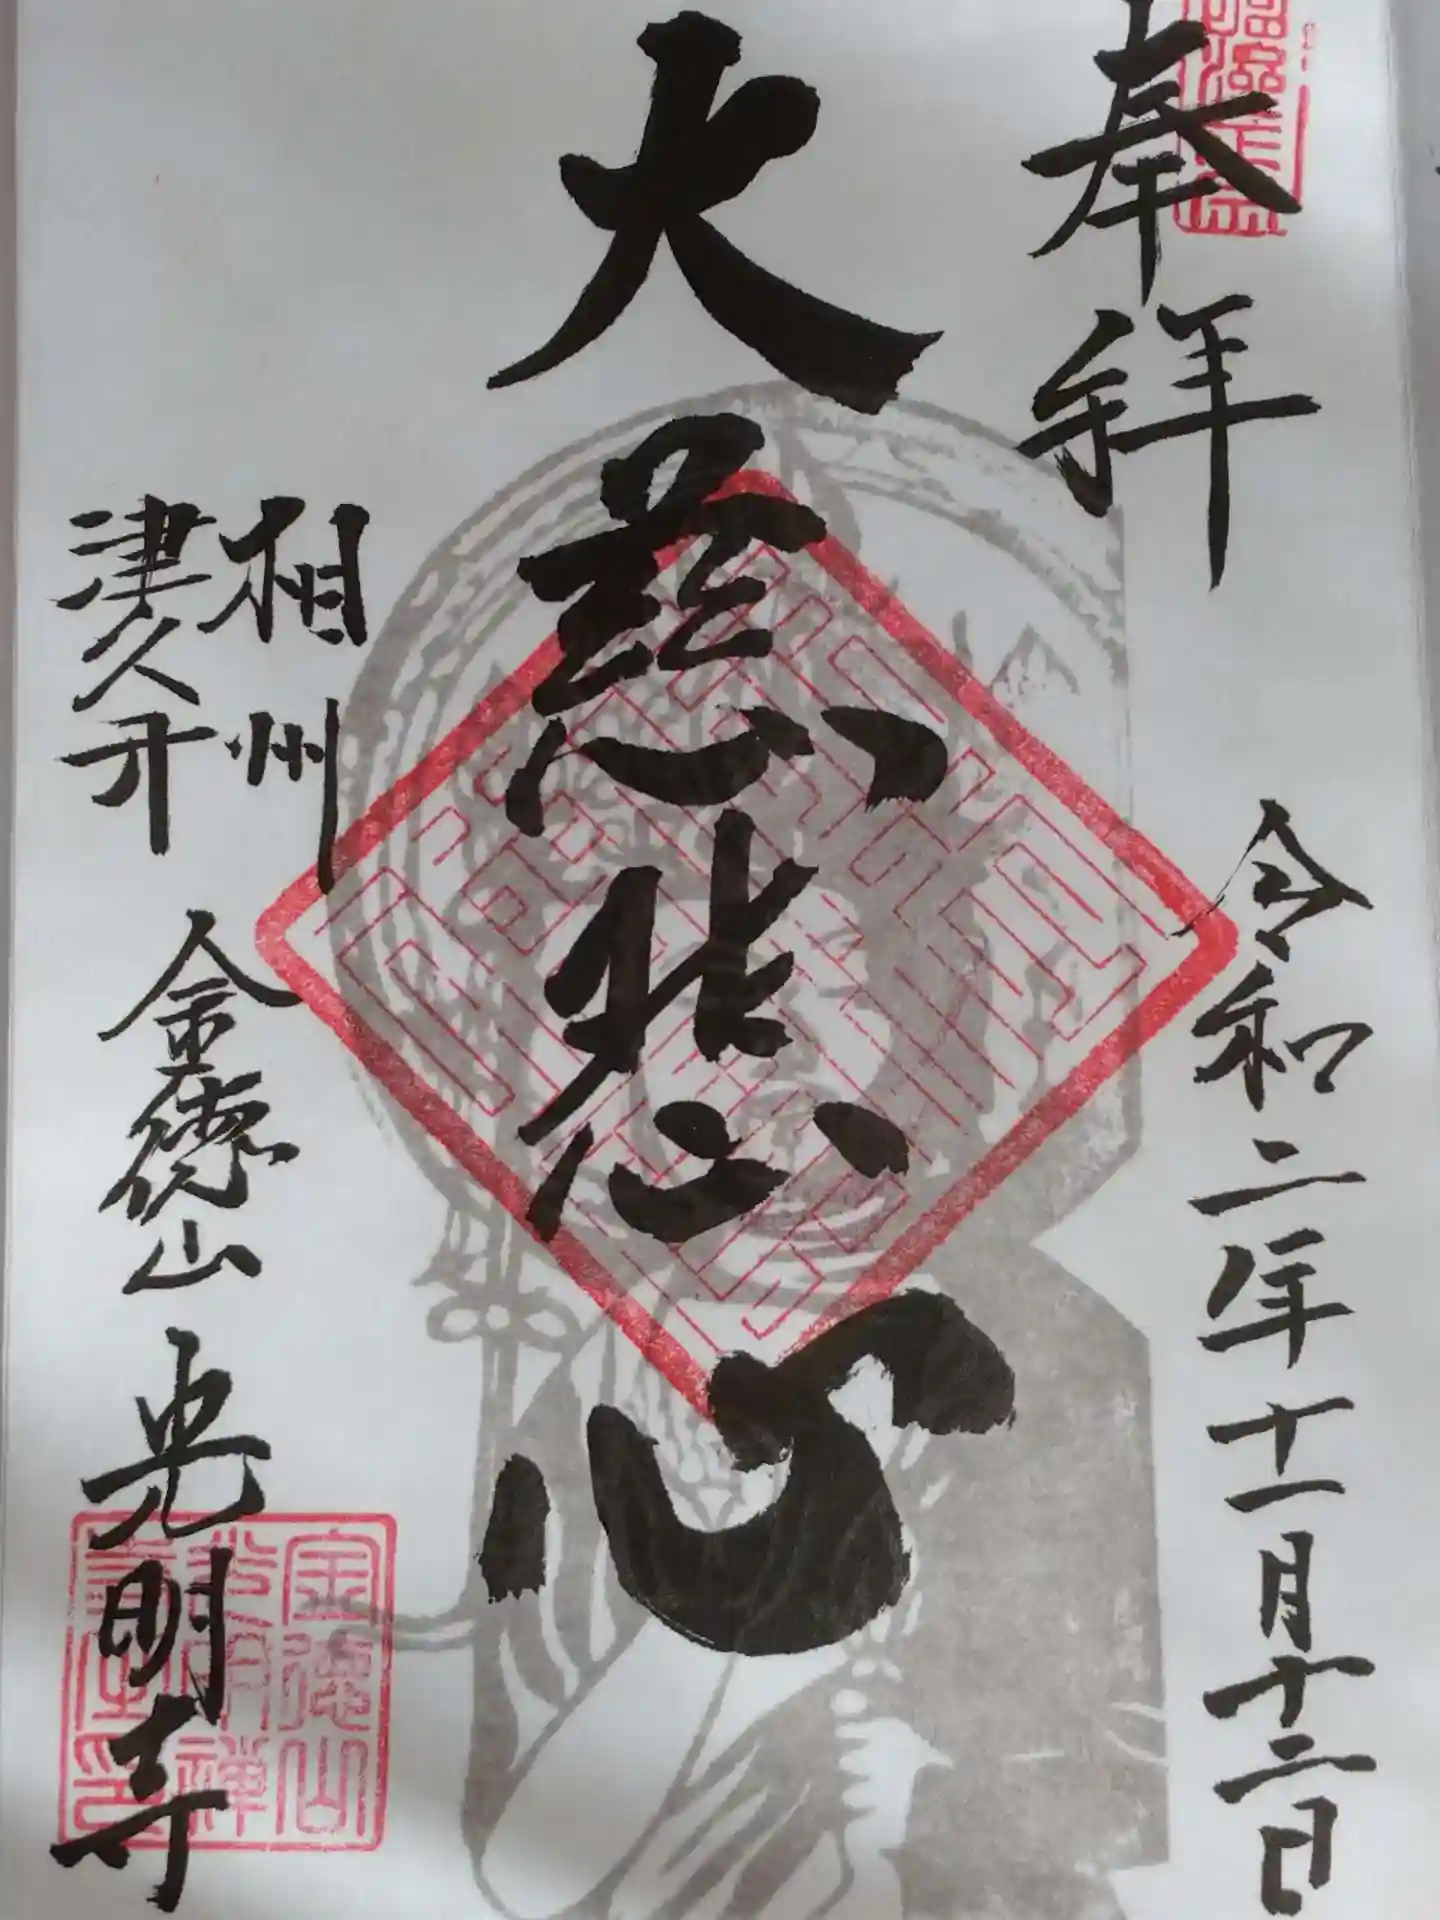 奉拝
令和二年十一月十二日
大慈悲心
相州
津久井
金徳山
光明寺
金徳山
光明禅
寺之印